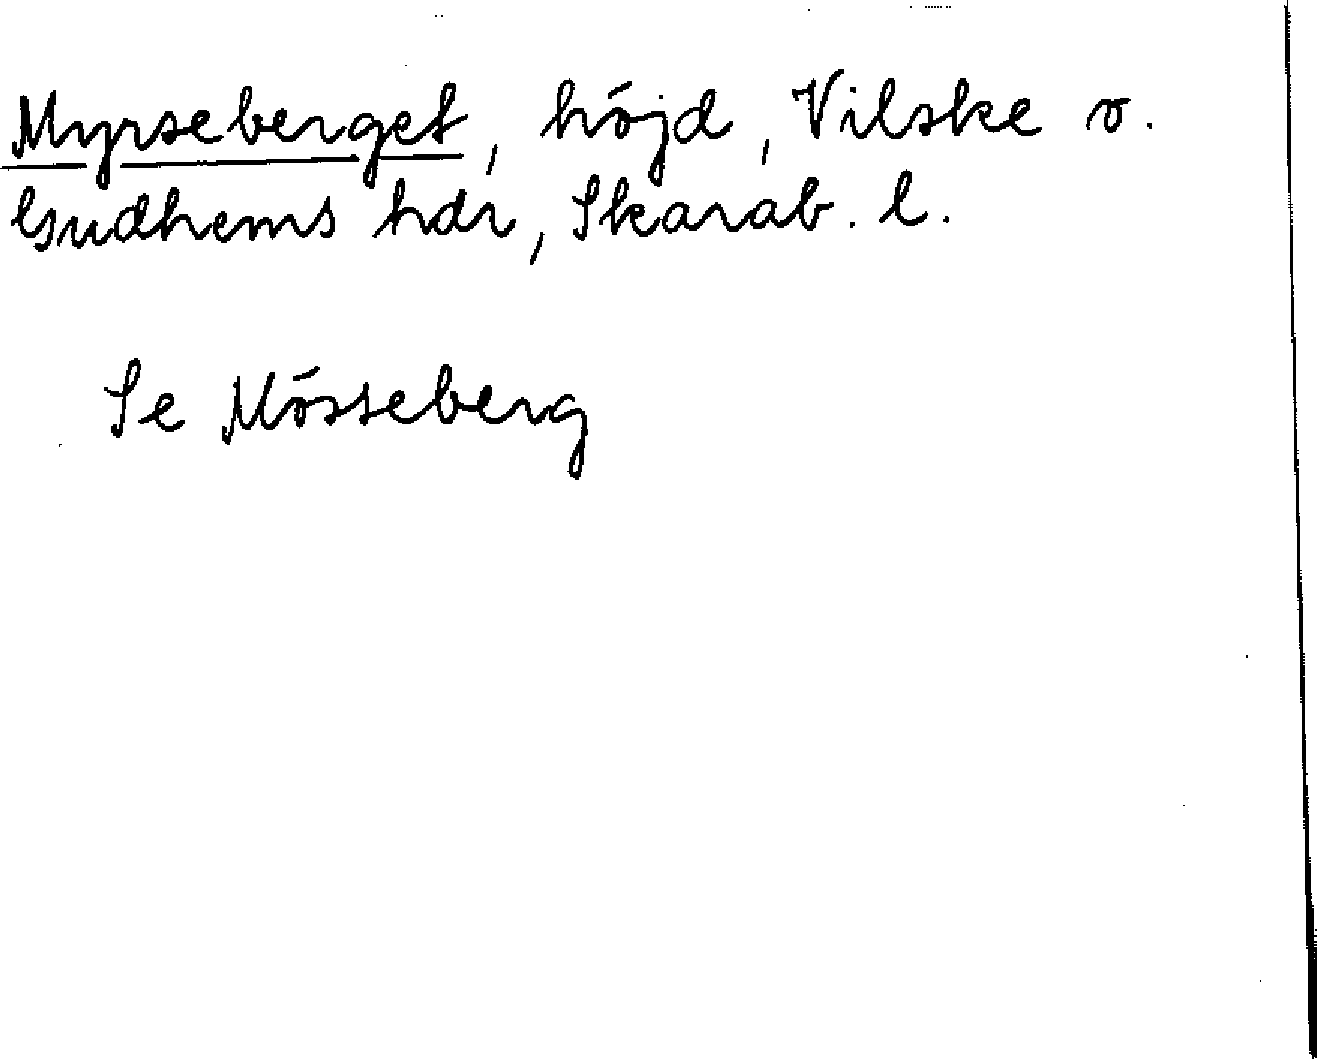 Myrseberget, höjd, Vilske o.
Gudhems hdr, Skarab. l.
Se Mösseberg